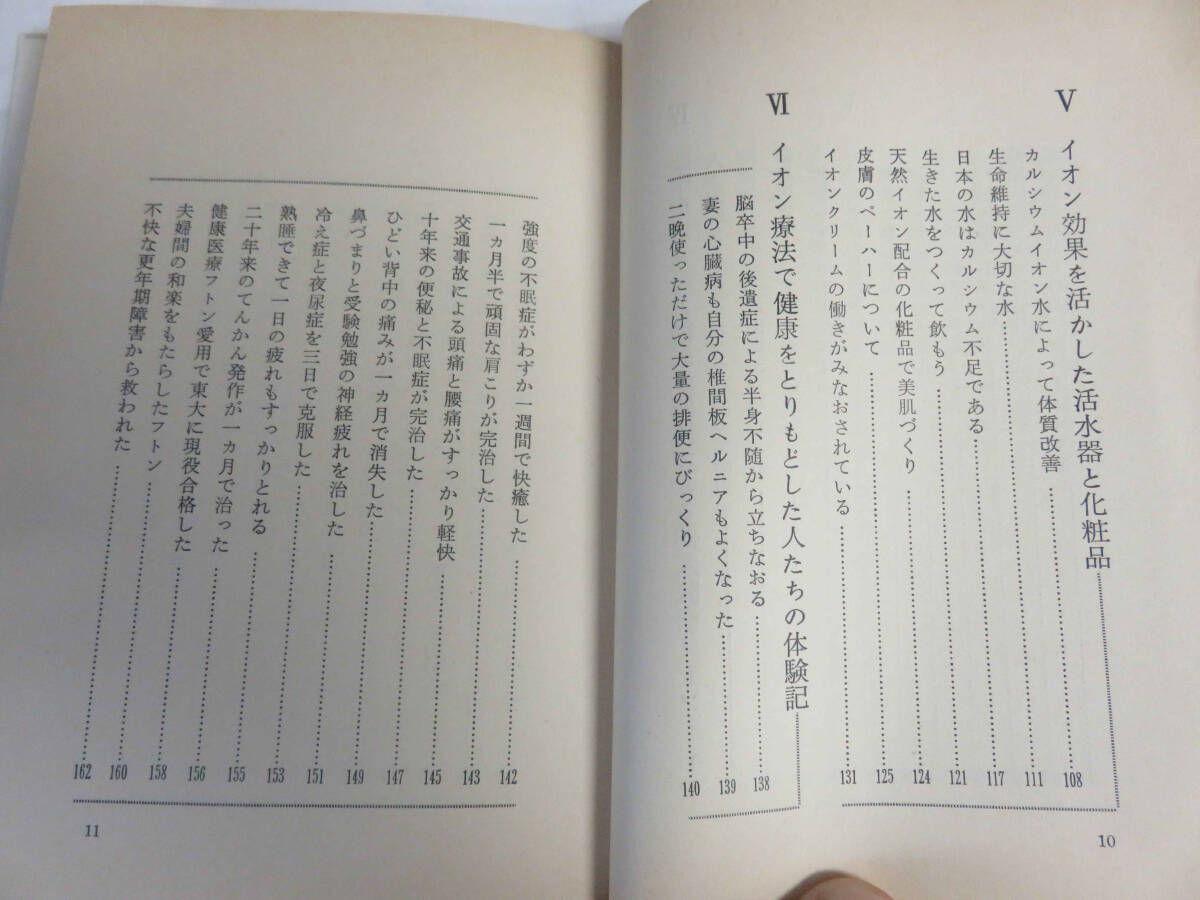 V イオン効果を活かした活水器と化粧品
カルシウムイオン水によって体質改善……108
生命維持に大切な水……111
日本の水はカルシウム不足である……117
生きた水をつくって飲もう……121
天然イオン配合の化粧品で美肌づくり……124
皮膚のペーハーについて……125
イオンクリームの働きがみなおされている……131
VI イオン療法で健康をとりもどした人たちの体験記
脳卒中の後遺症による半身不随から立ちなおる……138
妻の心臓病も自分の椎間板ヘルニアもよくなった……139
二晩使っただけで大量の排便にびっくり……140
10
強度の不眠症がわずか一週間で快癒した……142
一ヵ月半で頑固な肩こりが完治した……143
交通事故による頭痛と腰痛がすっかり軽快……145
十年来の便秘と不眠症が完治した……147
ひどい背中の痛みが一ヵ月で消失した……149
鼻づまりと受験勉強の神経疲れを治した……151
冷え症と夜尿症を三日で克服した……153
熟睡できて一日の疲れもすっかりとれる……155
二十年来のてんかん発作が一ヵ月で治った……156
健康医療フトン愛用で東大に現役合格した……158
夫婦間の和楽をもたらしたフトン……160
不快な更年期障害から救われた……162
11